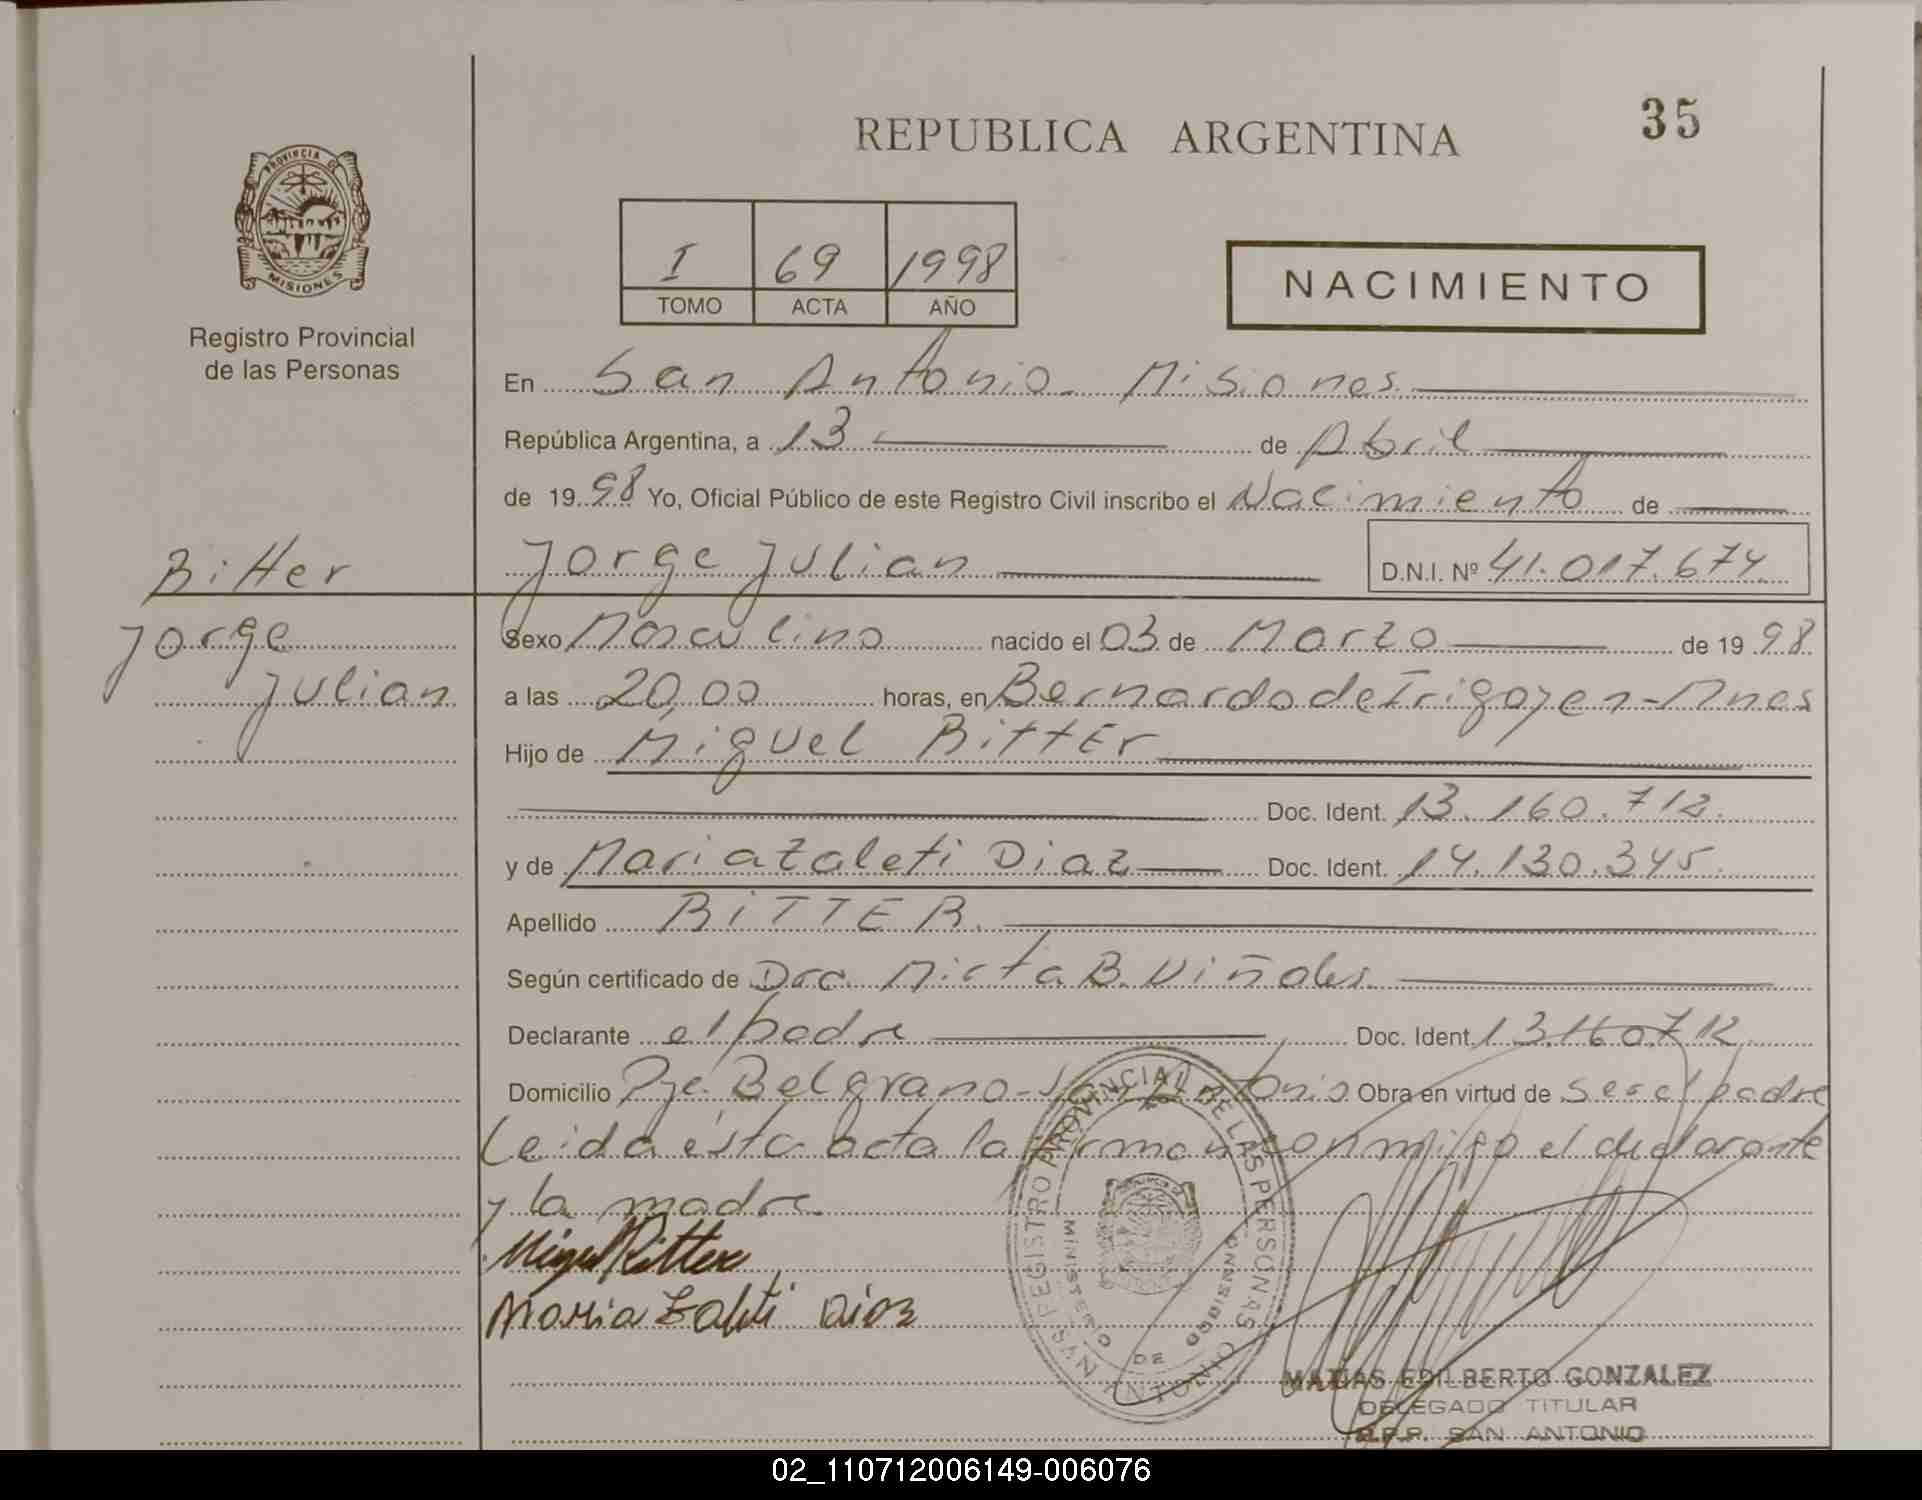 35
REPUBLICA ARGENTINA
PROVINCIA
MISIONES
Registro Provincial
de las Personas
I 69 1998
TOMO ACTA AÑO
NACIMIENTO
En San Antonio - Misiones
República Argentina, a 13 de Abril
de 1998 Yo, Oficial Público de este Registro Civil inscribo el Nacimiento de
Bitter
Jorge
Julian
Jorge Julian D.N.I. Nº 41.017.674
Sexo Masculino nacido el 03 de Marzo de 1998
a las 20,00 horas, en Bernardo de Irigoyen - Mnes
Hijo de Miguel Bitter
Doc. Ident. 13.160.712.
y de Maria Zaleti Diaz Doc. Ident. 14.130.345.
Apellido BiTTER.
Según certificado de Dra. Mirta B. Viñales
Declarante el padre Doc. Ident. 13.160.712
Domicilio Pje. Belgrano - San Antonio Obra en virtud de ser el padre
Leida ésta acta la firman conmigo el declarante
y la madre.
Miguel Bitter
Maria Zaleti Diaz
REGISTRO PROVINCIAL DE LAS PERSONAS
MINISTERIO DE GOBIERNO
SAN ANTONIO
MATIAS EDILBERTO GONZALEZ
DELEGADO TITULAR
R.P.P. SAN ANTONIO
02_110712006149-006076